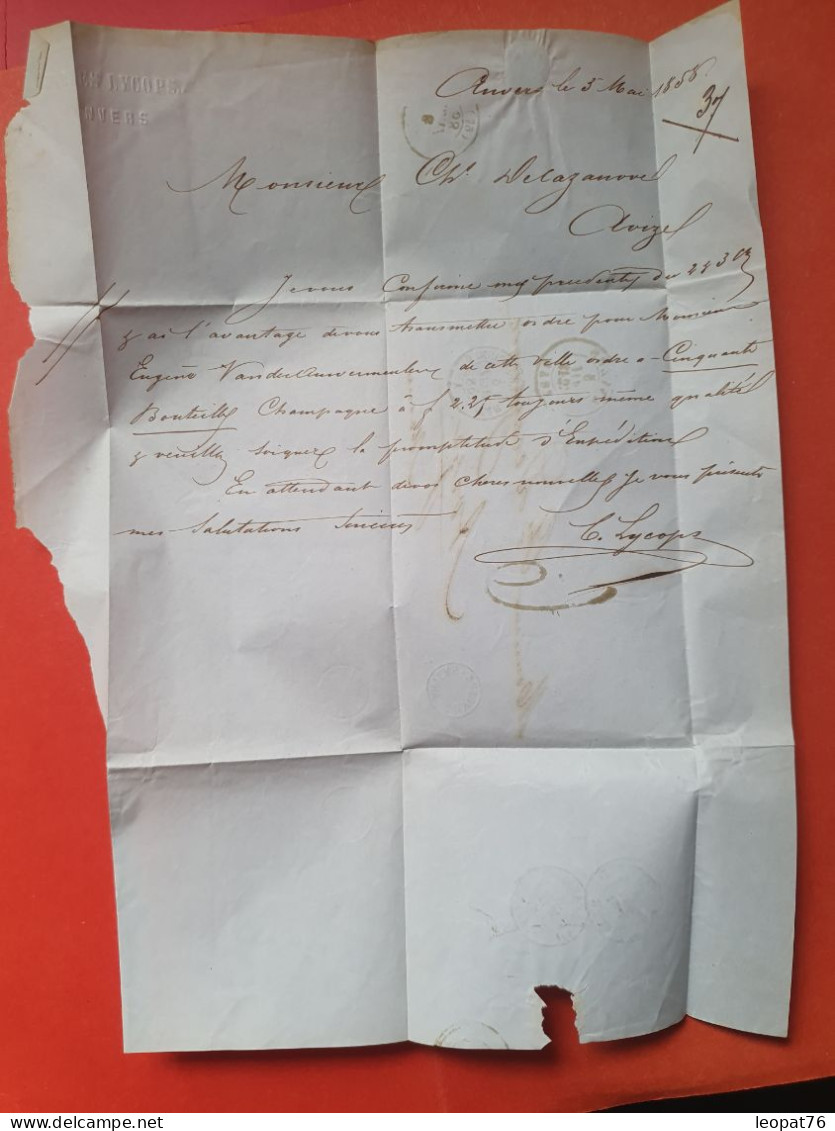 LYCOPS
ANVERS
Anvers le 5 Mai 1858
37
Monsieur Chs. Decazanove
Avize
Je vous Confirme mes precedentes du 22 & 3 Ct
& ai l'avantage de vous transmettre ordre pour Monsieur
Eugène Vanderauwermeulen de cette ville ordre a Cinquante
Bouteilles Champagne à f 2.25 toujours même qualité
& veuillez soigner la promptitude d'Expédition
En attendant de vos chères nouvelles Je vous présente
mes Salutations Sincères
C. Lycops
leopat76